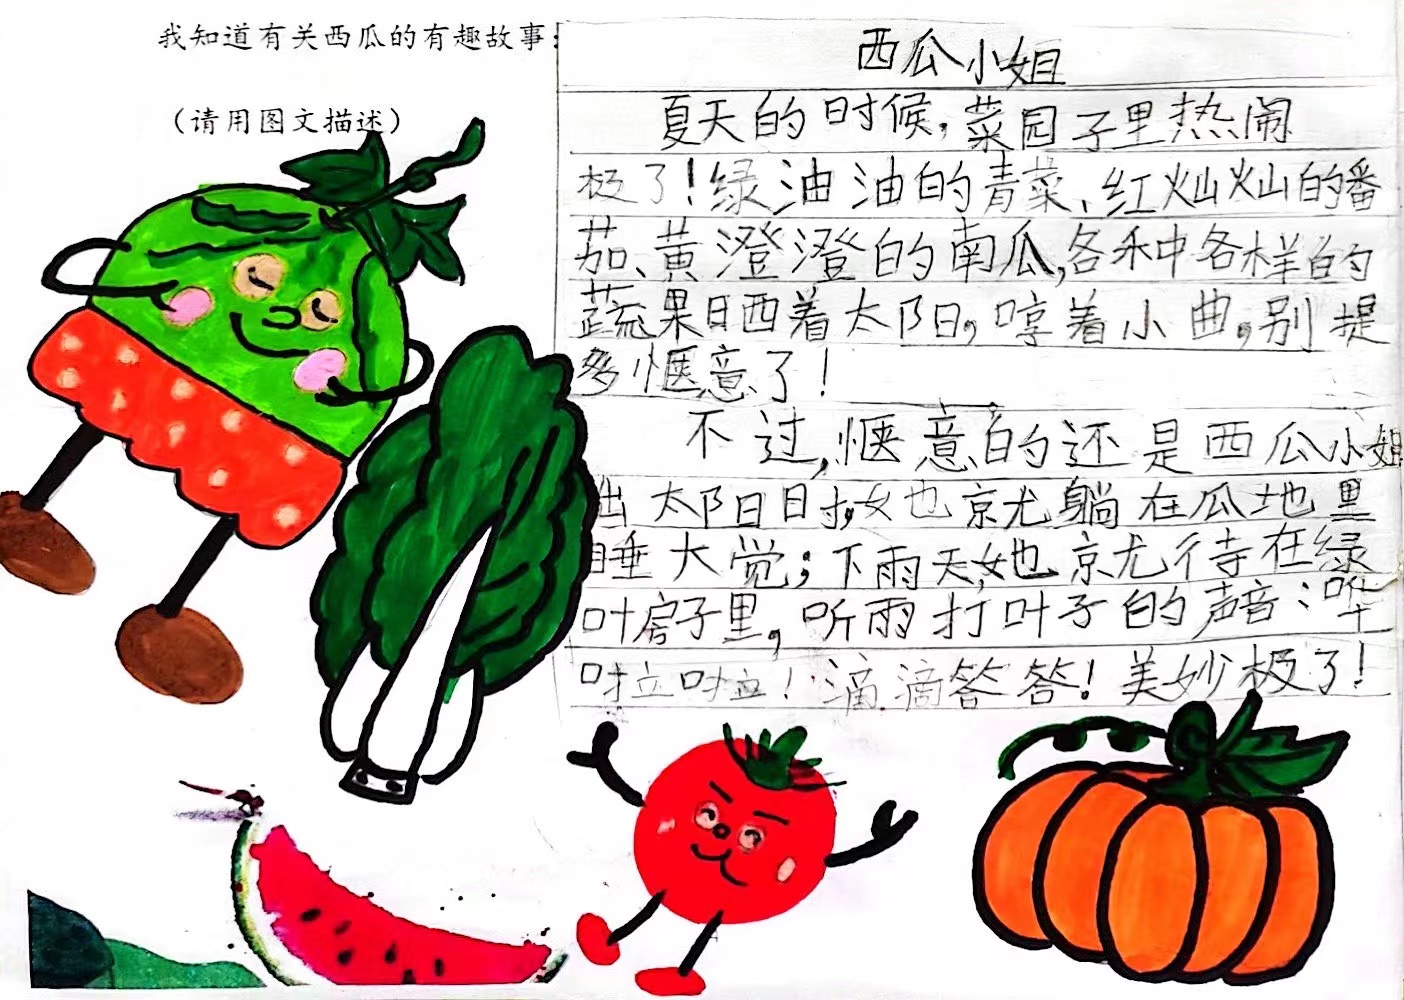 我知道有关西瓜的有趣故事：
（请用图文描述）
西瓜小姐
夏天的时候，菜园子里热闹
极了！绿油油的青菜、红灿灿的番
茄、黄澄澄的南瓜，各种各样的
蔬果日晒着太阳，哼着小曲，别提
多惬意了！
不过，惬意的还是西瓜小姐
出太阳时，她就躺在瓜地里
睡大觉；下雨天，她就待在绿
叶房子里，听雨打叶子的声音：哗
啦啦！滴滴答答！美妙极了！